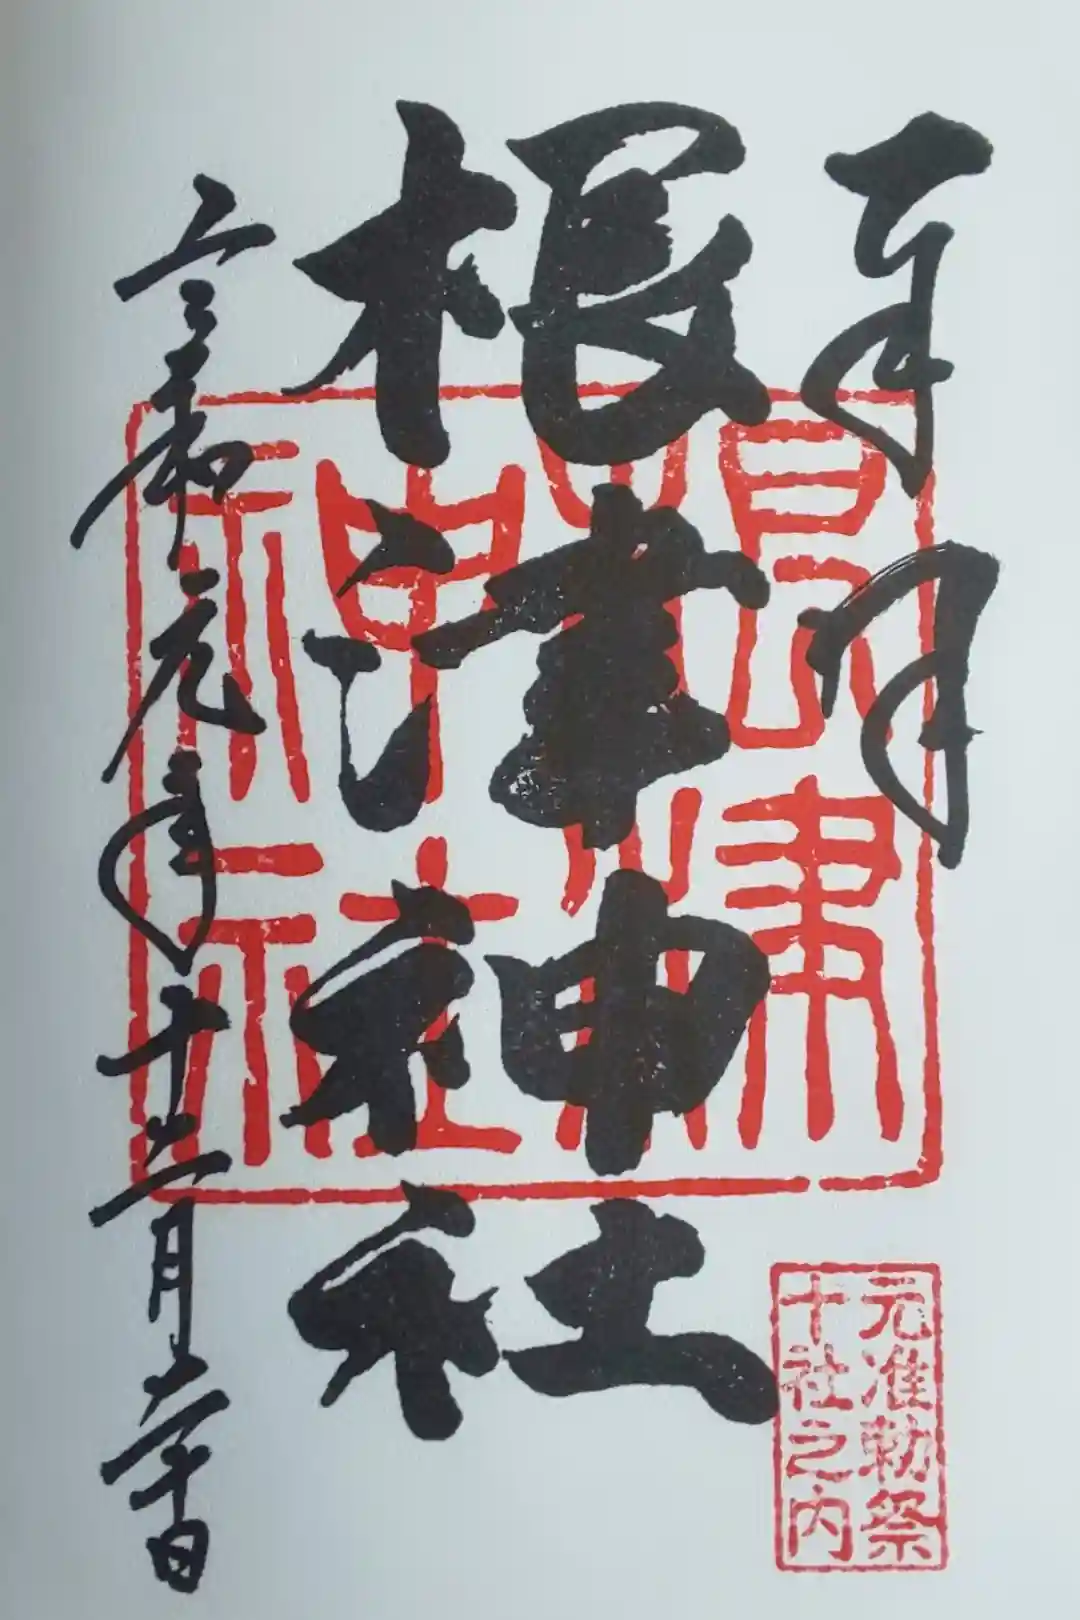 奉拝
元准勅祭
十社之内
根津神社
根津神社
令和元年十二月二十日